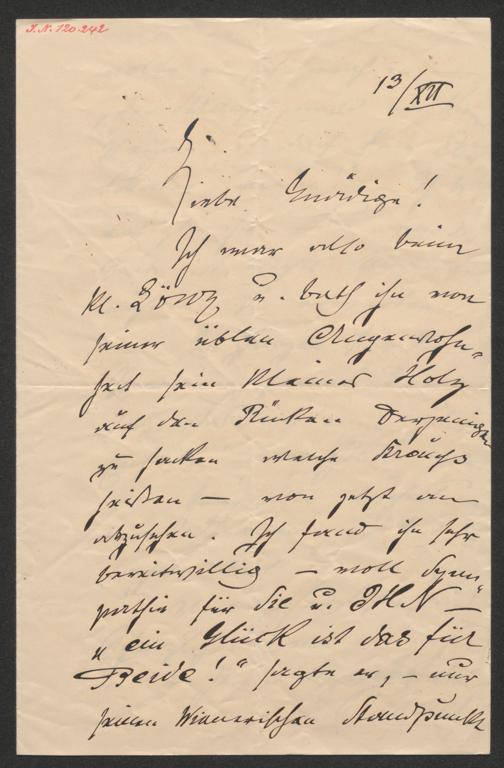 I.N. 120.242
13/XII
Liebe Gnädige!
Ich war also beim
kl. Löwy u. bath ihn von
seiner üblen Angewohn-
heit sein kleines Holz
auf den Rücken Derjenigen
zu hacken welche
heißen — von jetzt an
abzusehen. Ich fand ihn sehr
bereitwillig — voll Sym-
pathie für Sie u. IHN —
„ein Glück ist das für
Beide!" sagte er, — nur
seinen Wienerischen Standpunkt